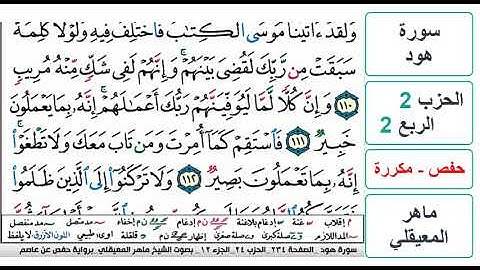 وَلَقَدْ ءَاتَيْنَا مُوسَى الْكِتَٰبَ فَاخْتُلِفَ فِيهِ وَلَوْلَا كَلِمَةٌ
سَبَقَتْ مِن رَّبِّكَ لَقُضِىَ بَيْنَهُمْ وَإِنَّهُمْ لَفِى شَكٍّ مِّنْهُ مُرِيبٍ
١١٠ وَإِنَّ كُلًّا لَّمَّا لَيُوَفِّيَنَّهُمْ رَبُّكَ أَعْمَٰلَهُمْ إِنَّهُۥ بِمَا يَعْمَلُونَ
خَبِيرٌ ١١١ فَاسْتَقِمْ كَمَا أُمِرْتَ وَمَن تَابَ مَعَكَ وَلَا تَطْغَوْا
إِنَّهُۥ بِمَا تَعْمَلُونَ بَصِيرٌ ١١٢ وَلَا تَرْكَنُوا إِلَى الَّذِينَ ظَلَمُوا
سورة هود . الصفحة ٢٣٤ . الحزب ٢٤ . الجزء ١٢ . بصوت الشيخ ماهر المعيقلي . برواية حفص عن عاصم
سورة
هود
الحزب 2
الربع 2
حفص - مكررة
ماهر
المعيقلي